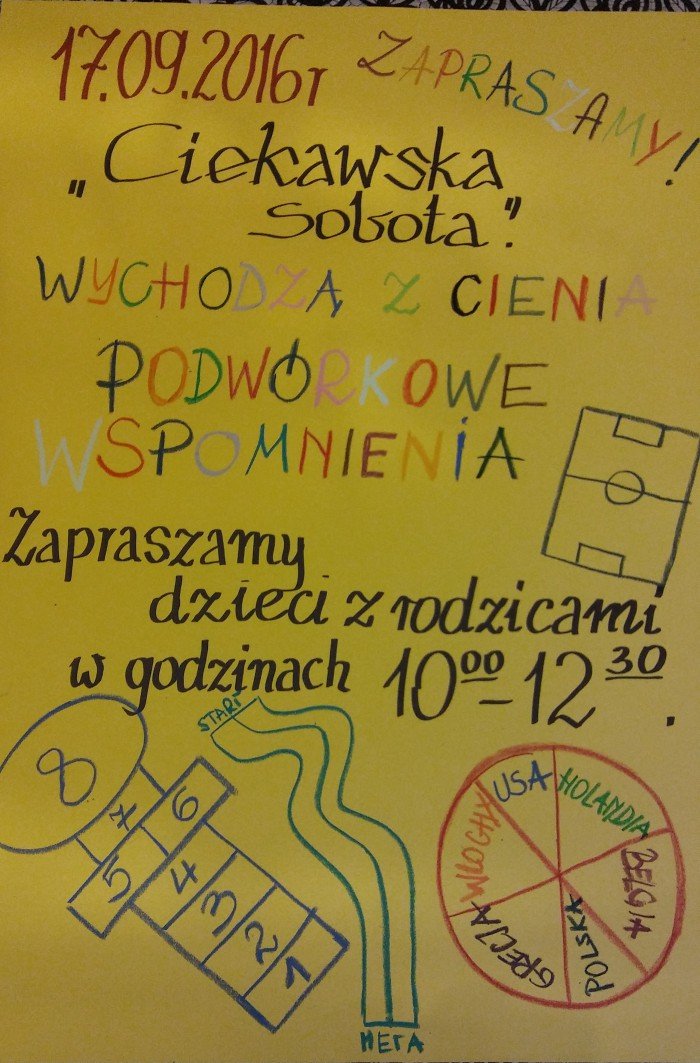 17.09.2016r ZAPRASZAMY!
„Ciekawska
sobota".
WYCHODZĄ Z CIENIA
PODWÓRKOWE
WSPOMNIENIA
Zapraszamy
dzieci z rodzicami
w godzinach 10⁰⁰-12³⁰.
START
8
7
6
5
4
3
2
1
META
USA
HOLANDIA
BELGIA
POLSKA
GRECJA
WŁOCHY